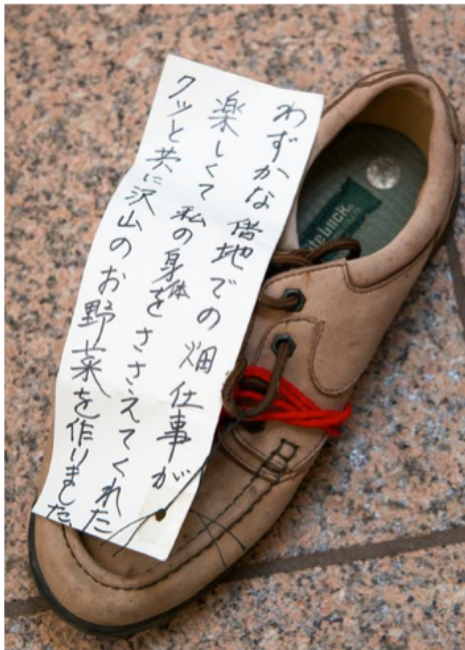 わずかな借地での畑仕事が
楽しくて私の身体をささえてくれた
クツと共に沢山のお野菜を作りました